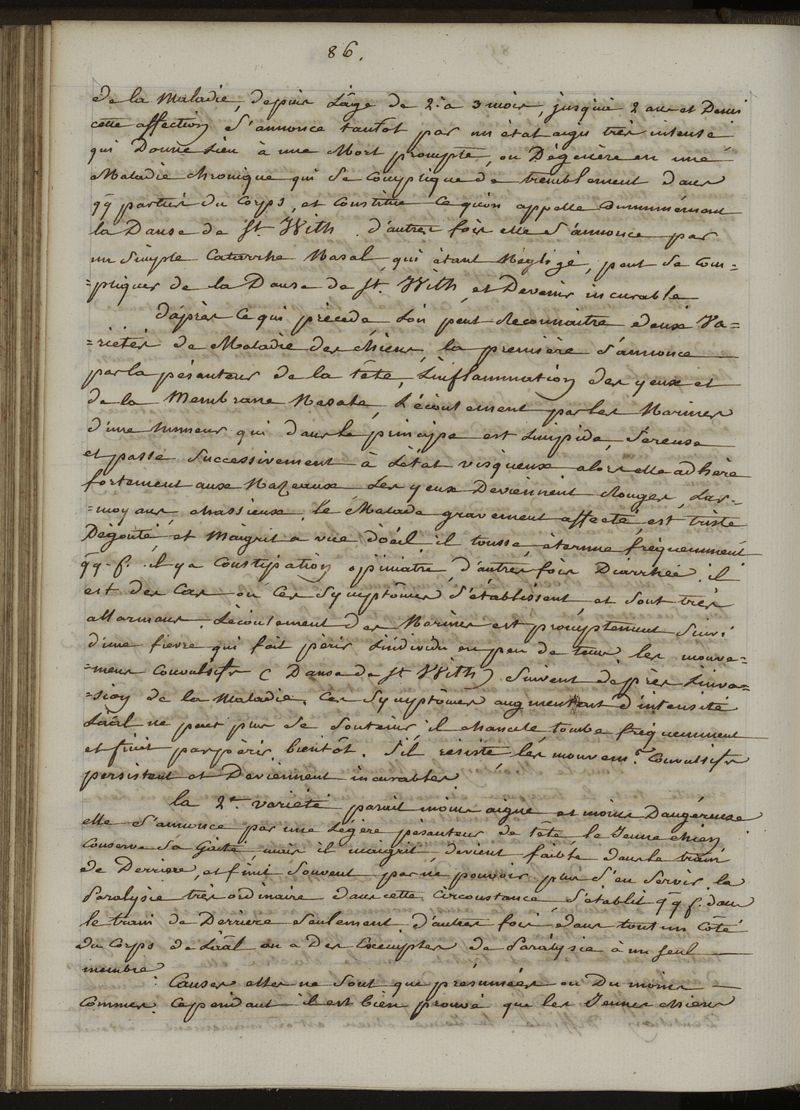 86.
de la Maladie, depuis L'âge de 2 a 3 mois, jusqu'à 2 ans et Demi
cette affection S'annonce tantot par un état aigu très intense
qui Donne Lieu à une Mort prompte, ou Dégénère en une
Maladie chronique qui Se complique de tremblement dans
qq parties du Corps, et constitue Ce qu'on appelle Communément
la Danse de St. With. d'autres fois elle S'annonce par
un Simple Catarrhe Nasal qui étant Négligé, peut Se Com=
=pliquer de la Danse de St. With, et Devenir incurable
D'après Ce qui précède, L'on peut Reconnaitre deux Va=
=riétés de Maladie des chiens, la première S'annonce
par la pésanteur de la tête, L'inflammation des yeux et
de la Membrane Nasale, L'écoulement par les Narines
d'une humeur qui dans le principe est Limpide, Sereuse
et passe Successivement à L'état visqueux alors elle adhère
fortement aux Nazeaux Les yeux Deviennent Rouges, Lar=
=moyans, chassieux. le Malade gravement affecté, est triste
Dégouté, et Maigrit a vue d'oeil, il tousse, éternue fréquemment
qq. f. il y a Constipation opiniatre, d'autres fois Diarrhée. il
est des Cas où Ces Symptômes S'établissent et Sont très
allarmans. L'écoulement des Narines est promptement Suivi
d'une fievre qui fait périr L'individu en peu de tems, les mouve=
=mens Convulsifs (Danse de St With) Suivent de près L'inva=
=sion de la Maladie. Ces Symptômes augmentant d'intensité
L'aâl ne peut plus Se Soutenir, il chancele tombe fréquemment
et finit par périr bientôt. S'il résiste, les mouvem.s Convulsifs
persistent et Deviennent incurables.
la 2e variété parait moins aigue et moins Dangéreuse
elle S'annonce par une Légère pésanteur de tête, le Jeune chien
Conserve Sa Gaité, mais il maigrit, devient faible dans le train
de Derriere, et finit Souvent par ne pouvoir plus S'en Servir, la
Paralysie très ordinaire dans cette Circonstance, S'établit qq f. dans
le train de Derriere Seulement, d'autres fois, dans tout un Côté
du Corps de L'aâl on a Des Exemples de Paralysie à un Seul
membre.
Causes elles ne Sont que présumées ou Du moins
Commes. Cependant il est bien prouvé que les Jeunes chiens